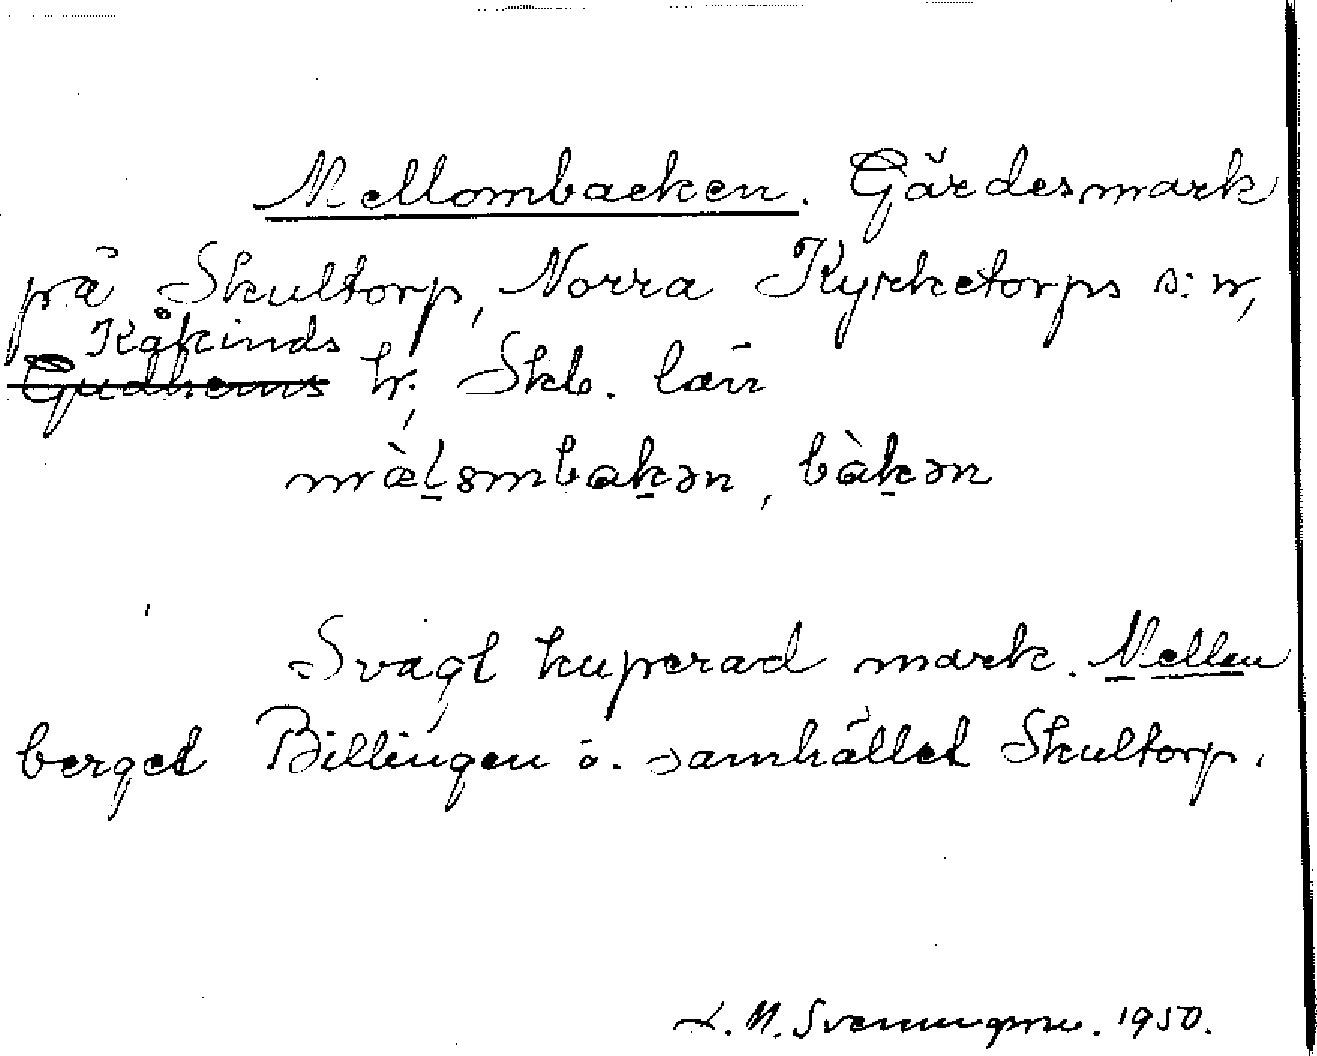 Mellombacken. Gärdesmark
på Skultorp, Norra Kyrketorps s:n,
Kåkinds
Gudhems hr, Skb. län
mæ̀l̠ɜmbak̠ən, bàk̠ən
Svagt kuperad mark. Mellan
berget Billingen o. samhället Skultorp.
L. M. Svenungsson. 1950.